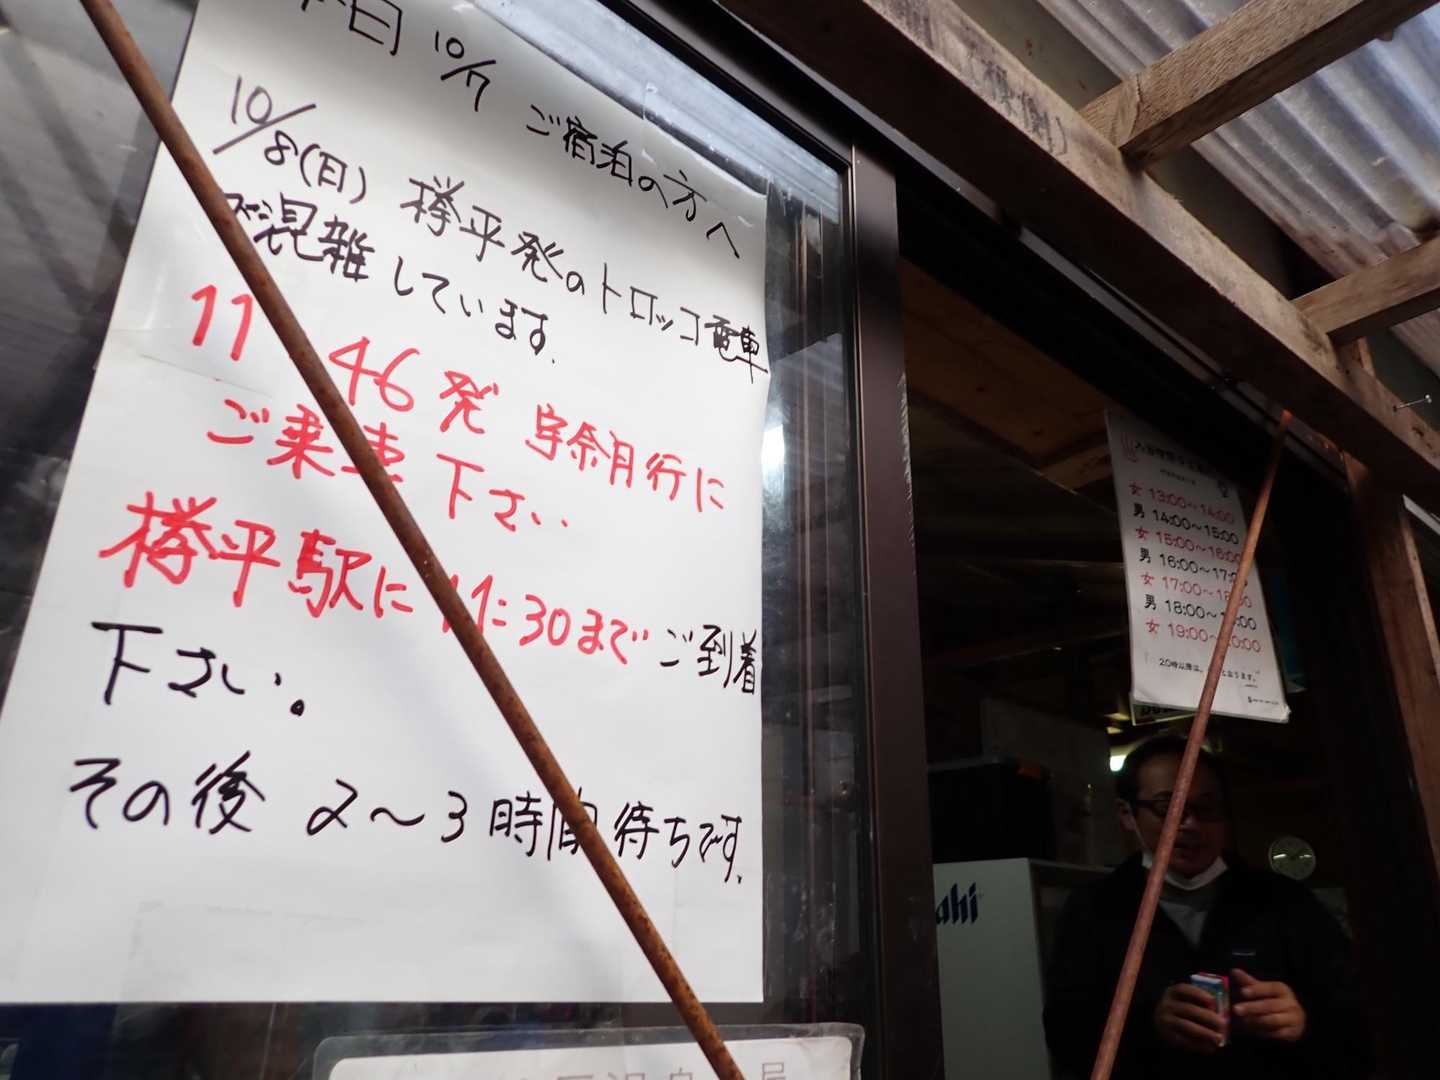 本日 10/7 ご宿泊の方へ
10/8(日) 欅平発のトロッコ電車
が混雑しています.
11 46発 宇奈月行に
ご乗車下さい
欅平駅に11:30までご到着
下さい。
その後 2～3時間待ちです.
女 13:00～14:00
男 14:00～15:00
女 15:00～16:00
男 16:00～17:
女 17:00～18:00
男 18:00～
女 19:00～20:00
20時以降は、
ahi